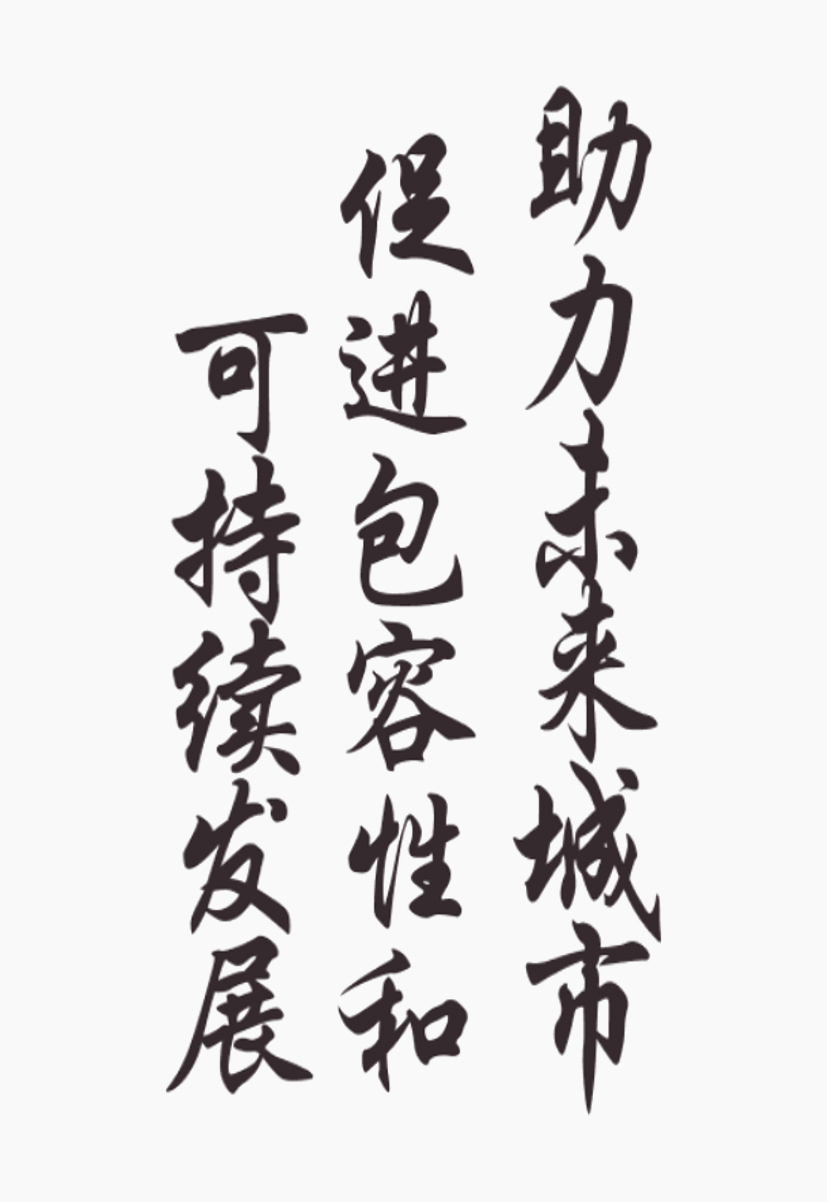 助力未来城市
促进包容性和
可持续发展